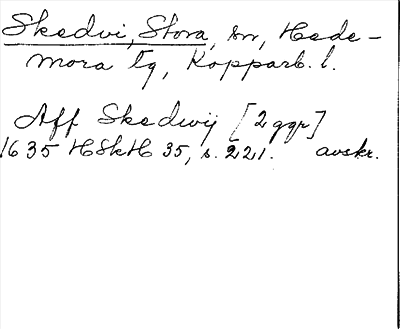 Skedvi, Stora, sn, Hede-
mora tg, Kopparb. l.
Aff Skedwij [2 ggr]
1635 HSkH 35, s. 221. avskr.